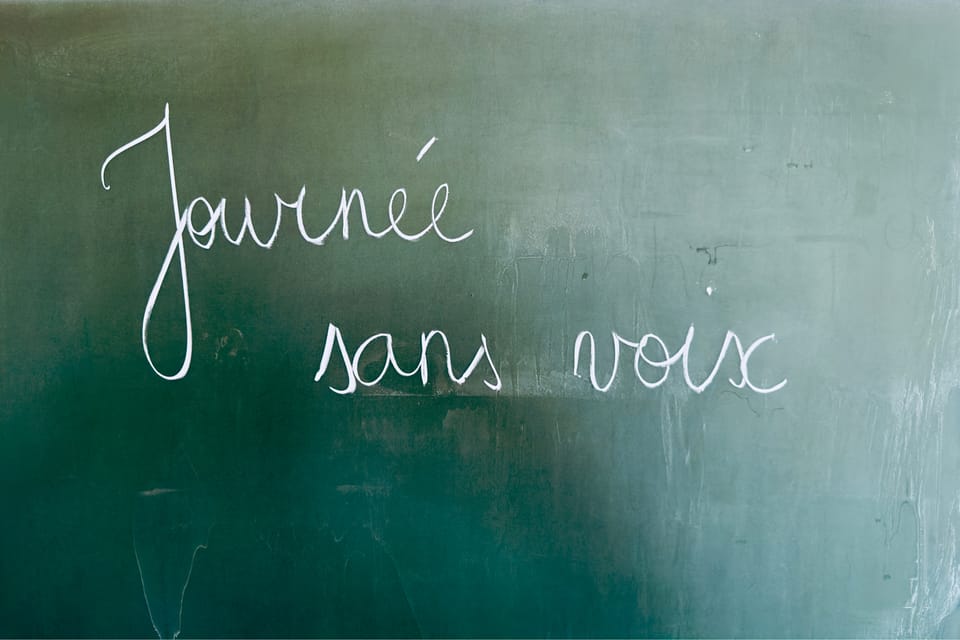 Journée
sans voix